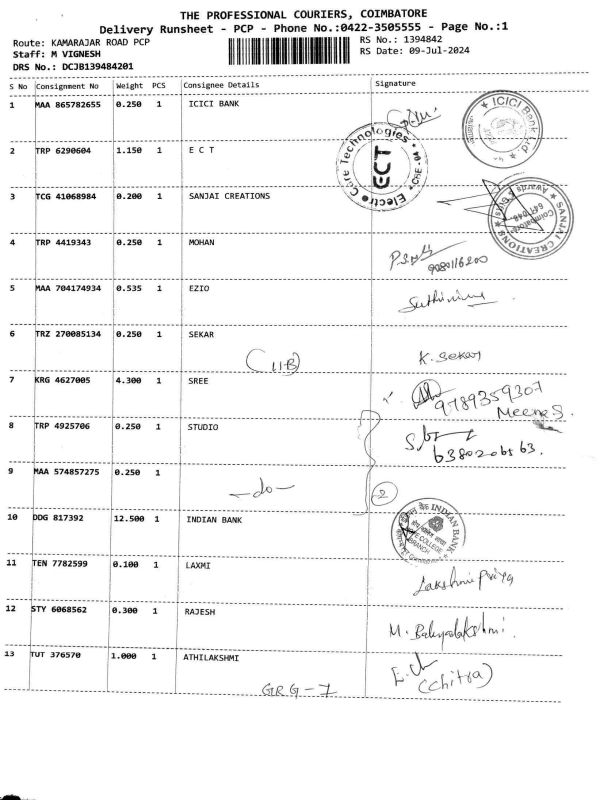 THE PROFESSIONAL COURIERS, COIMBATORE
Delivery Runsheet - PCP - Phone No.:0422-3505555 - Page No.:1
Route: KAMARAJAR ROAD PCP
RS No.: 1394842
Staff: M VIGNESH
RS Date: 09-Jul-2024
DRS No.: DCJB139484201
S No Consignment No Weight PCS Consignee Details Signature
1 MAA 865782655 0.250 1 ICICI BANK
ICICI Bank Ltd
2 TRP 6290604 1.150 1 E C T
Electro Care Technologies
ECT
CBE - 04
3 TCG 41068984 0.200 1 SANJAI CREATIONS
SANJAI CREATIONS
Coimbatore
4 TRP 4419343 0.250 1 MOHAN
9080116200
5 MAA 704174934 0.535 1 EZIO
6 TRZ 270085134 0.250 1 SEKAR
K. Sekar
(11-B)
7 KRG 4627005 4.300 1 SREE
9789359307
Meena S.
8 TRP 4925706 0.250 1 STUDIO
6380206563.
9 MAA 574857275 0.250 1
-do-
2
10 DDG 817392 12.500 1 INDIAN BANK
INDIAN BANK
11 TEN 7782599 0.100 1 LAXMI
Lakshmi Priya
12 STY 6068562 0.300 1 RAJESH
M. Bakyalakshmi.
13 TUT 376570 1.000 1 ATHILAKSHMI
(Chitra)
GRG - 7